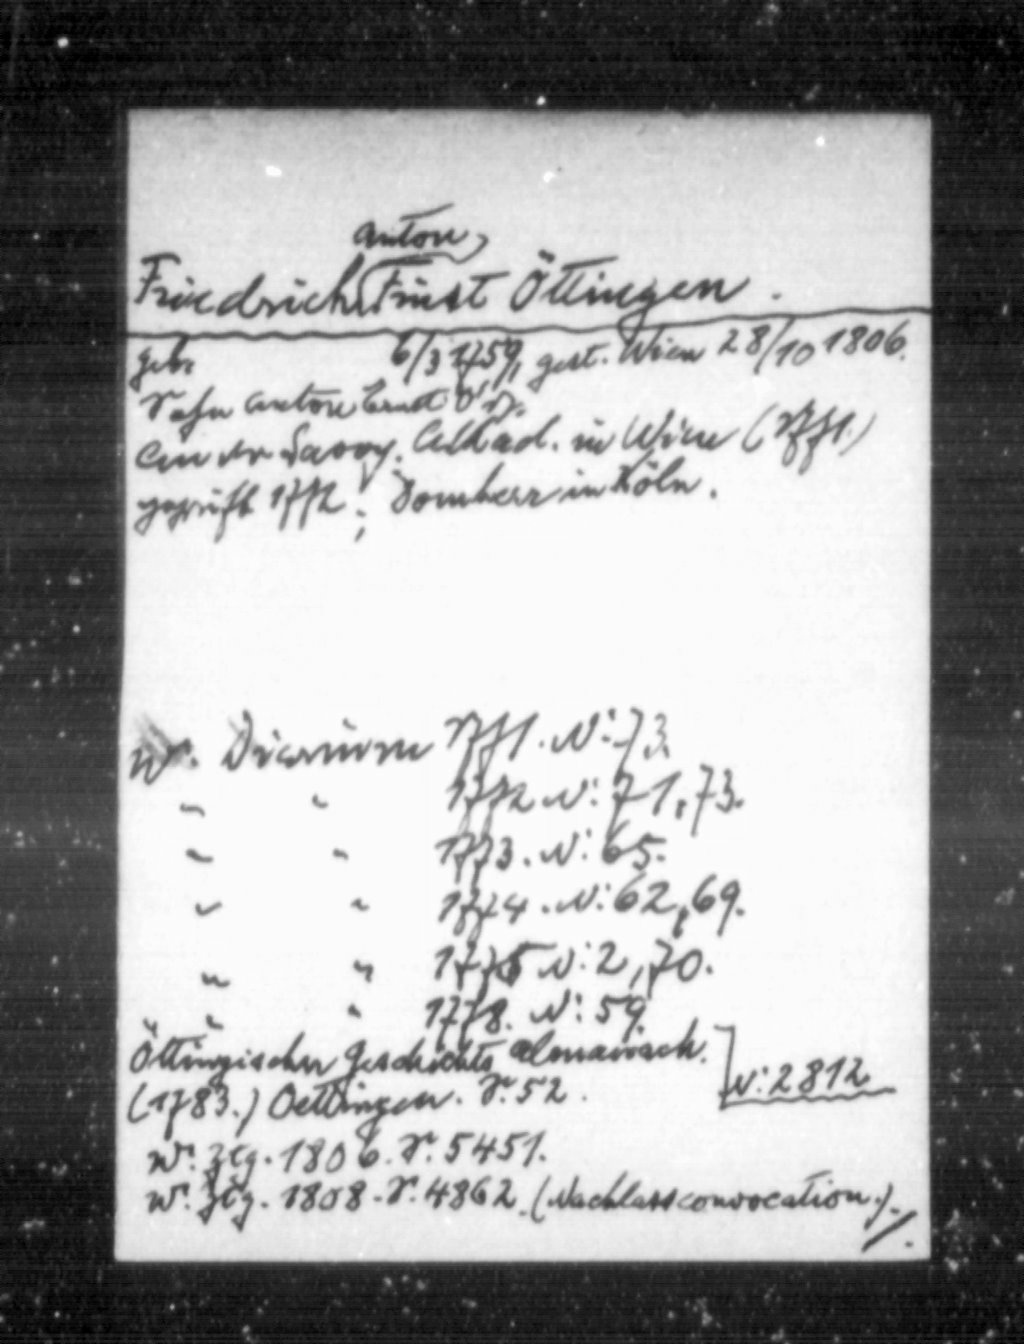 Anton,
Friedrich Fürst Öttingen.
geb. 6/3 1759, gest. Wien 28/10 1806.
Sohn Anton Ernst Ö's.
an der Savoy. Akad. in Wien (1771.)
geprüft 1772; Domherr in Köln.
W. Diarium 1771. N: 73.
" " 1772. N: 71, 73.
" " 1773. N: 65.
" " 1774. N: 62, 69.
" " 1775 N: 2, 70.
" " 1778. N: 59.
Öttingischer Geschichts Almanach.
(1783.) Oettingen. S. 52. N: 2812
W. Ztg. 1806. S. 5451.
W. Ztg. 1808. S. 4862. (Nachlassconvocation.).